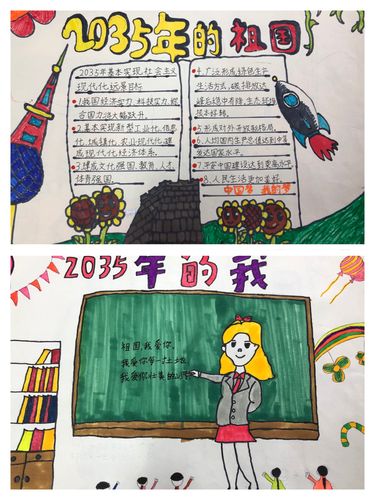 2035年的祖国
2035年基本实现社会主义
现代化远景目标
1.我国经济实力、科技实力,综
合国力活大幅跃升。
2.基本实现新型工业化、信息
化、城镇化、农业现代化,建
成现代化经济体系。
3.建成文化强国、教育、人才、
体育强国
4.广泛形成绿色生产
生活方式,碳排放达
峰后稳中有降,生态环境
根本好转。
5.形成对外开放新格局。
6.人均国内生产总值达到中等
发达国家水平。
7.平安中国建设达到更高水平
8.人民生活更加美好。
中国梦 我的梦
2035年的我
祖国,我爱你,
我爱你每一寸土地
我爱你壮美的山河